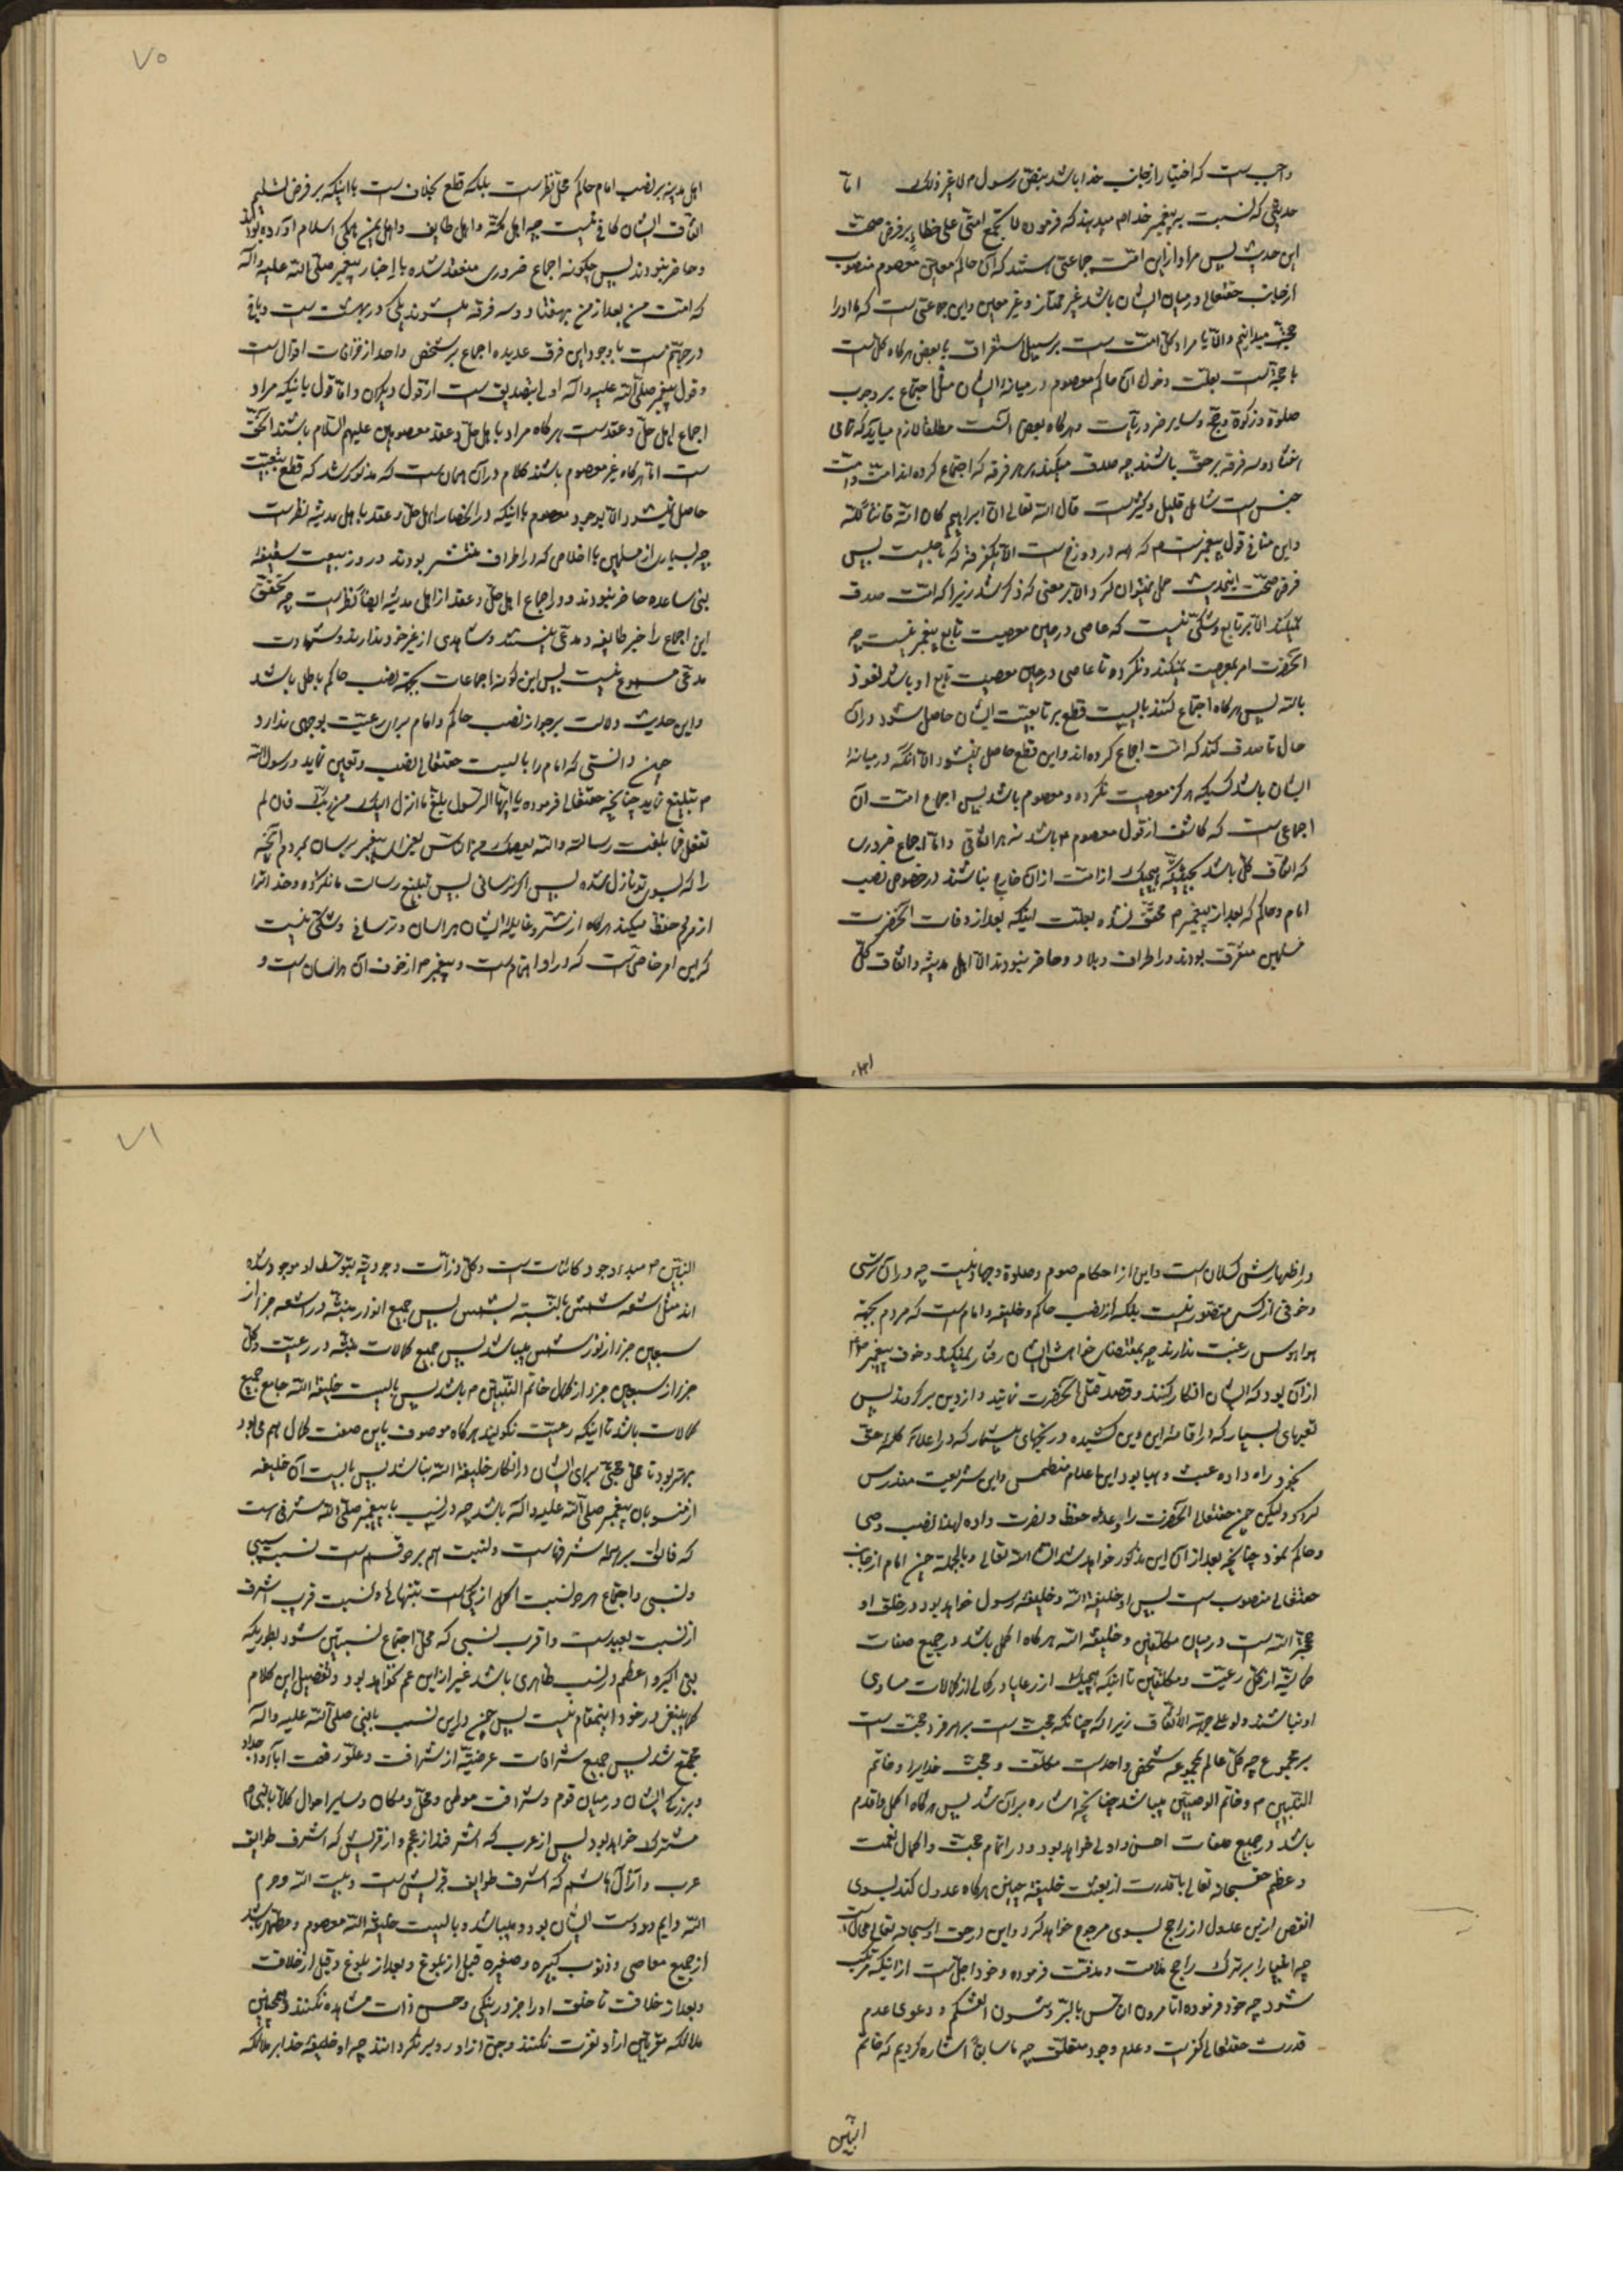 واجب است که اختیار از جانب خدا باشد بنصّ رسول ص لا غیر ذلک امّا
حدیثی که نسبت به پیغمبر خدا ص میدهند که فرموده لا تجتمع امتی علی خطاء بر فرض صحّت
این حدیث پس مراد از این امّت جماعتی هستند که آن حاکم معیّن معصوم منصوب
از جانب حقتعالی در میان ایشان باشد غیر ممتاز و غیر معین و این جماعتی است که ما او را
حجّة میدانیم و الّا یا مراد کلّ امّت است بر سبیل استغراق یا بعض هرگاه کلّ است
با حجّة است بعلّت دخول آن حاکم معصوم در میانهٔ ایشان مثل اجتماع بر وجوب
صلوة و زکوة و حجّ و سایر ضروریّات و هرگاه بعض است مطلقا لازم میاید که تمامی
هفتاد و سه فرقه بر حق باشند چه صدق میکند بر هر فرقه که اجتماع کرده اند امّت و امّت
جنس است شامل قلیل و کثیر است قال الله تعالی انّ ابراهیم کان امّة قانتا لله
و این منافی قول پیغمبر است ص که همه در دوزخ است الّا یکفرقه که ناجیست پس
فرض صحّت اینحدیث حمل نمیتوان کرد الّا بر معنی که ذکر شد زیرا که امّت صدق
نمیکند الّا بر تابع و شکّی نیست که عاصی در حین معصیت تابع پیغمبر نیست چه
آنحضرت امر بمعصیت نمیکند و نکرده تا عاصی در حین معصیت تابع او باشد نعوذ
بالله پس هرگاه اجتماع کنند بایست قطع بر تابعیّت ایشان حاصل شود در آن
حال تا صدق کند که امّت اجماع کرده اند و این قطع حاصل نمیشود الّا آنکه در میانهٔ
ایشان باشد کسیکه هرگز معصیت نکرده و معصوم باشد پس اجماع امّت آن
اجماعی است که کاشف از قول معصوم ع باشد نه هر اتفاقی و امّا اجماع ضروری
که اتفاق کلّ باشد بحیثیکه هیچیک از امّت از آن خارج نباشند در خصوص نصب
امام و حاکم که بعد از پیغمبر ص محقّق نشده بعلّت اینکه بعد از وفات آنحضرت
مسلمین متفرّق بودند در اطراف و بلاد و حاضر نبودند الّا اهل مدینه و اتفاق کلّ
اهل
۷۵
اهل مدینه بر نصب امام حاکم محلّ نظر است بلکه قطع بخلاف است با اینکه بر فرض تسلیم
اتفاق ایشان کافی نیست چه اهل مکّه و اهل طایف و اهل یمن همگی اسلام آورده بودند
و حاضر نبودند پس چگونه اجماع ضروری منعقد شده با اخبار پیغمبر صلّی الله علیه و آله
که امّت من بعد از من بهفتاد و سه فرقه میشوند یکی در بهشت است و باقی
در جهنّم است با وجود این فرق عدیده اجماع بر شخص واحد از خرافات اقوال است
و قول پیغمبر صلّی الله علیه و آله اولی بتصدیق است از قول دیگران و امّا قول باینکه مراد
اجماع اهل حلّ و عقد است هرگاه مراد باهل حلّ و عقد معصومین علیهم السّلام باشند الحقّ
است امّا هرگاه غیر معصوم باشند کلام در آن همان است که مذکور شد که قطع بتبعیّت
حاصل نمیشود الّا بوجود معصوم با اینکه در انحصار اهل حلّ و عقد باهل مدینه نظر است
چه بسیاری از مسلمین با اخلاص که در اطراف منتشر بودند در روز بیعت سقیفهٔ
بنی ساعده حاضر نبودند و در اجماع اهل حلّ و عقد از اهل مدینه ایضاً نظر است چه تحقّق
این اجماع را خبر طایفه و مدّعی هستند و شاهدی از غیر خود ندارند و شهادت
مدّعی مسموع نیست پس این گونه اجماعات بجهة نصب حاکم باطل باشد
و این حدیث دلالت بر جواز نصب حاکم و امام برای رعیّت بوجهی ندارد
چون دانستی که امام را بایست حقتعالی نصب و تعیین نماید و رسول الله
ص تبلیغ نماید چنانچه حقتعالی فرموده یا ایّها الرّسول بلّغ ما انزل الیک من ربّک فان لم
تفعل فما بلّغت رسالته والله یعصمک من النّاس یعنی ای پیغمبر برسان بمردم آنچه
را که بسوی تو نازل شده پس اگر نرسانی پس تبلیغ رسالت ما نکرده و خدا ترا
از مردم حفظ میکند هرگاه از شرّ و غایلهٔ ایشان هراسان و ترسانی و شکّی نیست
که این امر خاصّی است که در او اهتمام است و پیغمبر ص از خوف آن هراسان است و
در اظهارش کسلان است و این از احکام صوم و صلوة و جهاد نیست چه در آن ترسی
و خوفی از کس متصوّر نیست بلکه از نصب حاکم و خلیفه و امام است که مردم بجهة
هوا و هوس رغبت ندارند چه بمقتضای خواهش ایشان رفتار نمیکند و خوف پیغمبر ص
از آن بود که ایشان انکار کنند و قصد قتل آنحضرت نمایند و از دین برگردند پس
تعبهای بسیار که در اقامهٔ این دین کشیده و رنجهای بیشمار که در اعلاء کلمهٔ حق
بخود راه داده عبث و هبا بود این اعلام منطمس و این شریعت مندرس
گردد و لیکن چون حقتعالی آنحضرت را وعدهٔ حفظ و نصرت داده لهذا نصب وصی
و حاکم نمود چنانچه بعد از این مذکور خواهد شد انشاء الله تعالی و بالجمله چون امام از جانب
حقتعالی منصوب است پس او خلیفة الله و خلیفهٔ رسول خواهد بود در خلق او
حجّة الله است در میان مکلّفین و خلیفة الله هرگاه اکمل باشد در جمیع صفات
کمالیّه از کلّ رعیّت و مکلّفین تا اینکه هیچیک از رعایا در کمالی از کمالات مساوی
او نباشند ولو علی جهة الاتفاق زیرا که چنانکه حجّت است بر هر فرد حجّت است
بر مجموع چه کلّ عالم بمجموعه شخص واحد است مکلّف و حجّت خدایرا و خاتم
النّبیین ص و خاتم الوصیّین میباشد چنانچه اشاره بر آن شد پس هرگاه اکمل و اقدم
باشد در جمیع صفات احسن و اولی خواهد بود و در اتمام حجّت و اکمال نعمت
و عظم حقسبحانه تعالی با قدرت از بعثت خلیفهٔ چنین هرگاه عدول کند بسوی
انقص از این عدول از راجح بسوی مرجوح خواهد کرد و این در حق او سبحانه تعالی محال است
چه اغیار را بر ترک راجح ملامت و مذمّت فرموده و خود اجلّ است از اینکه مرتکب
شود چه خود فرموده اتأمرون النّاس بالبرّ و تنسون انفسکم و دعوی عدم
قدرت حقتعالی کفر است و عدم وجود متعلّق چه ما سابق اشاره کردیم که خاتم
النّبیّین
۷۶
النّبیّین ص مبدء وجود کائنات است و کلّ ذرّات وجودیّه بتوسّط او موجود شده
اند مثل اشعهٔ شمس بالنّسبه بشمس پس جمیع انوار منبثّه در اشعه جزء از
سبعین جزء از نور شمس میباشد پس جمیع کمالات منبثّه در رعیّت و کلّ
جزء از سبعین جزء از کمال خاتم النّبیّین ص باشد پس بایست خلیفة الله جامع جمیع
کمالات باشد تا اینکه رعیّت نگویند هرگاه موصوف باین صفت کمال هم می بود
بهتر بود تا محلّ حجّتی برای ایشان در انکار خلیفة الله نباشد پس بایست آن خلیفه
از منسوبان پیغمبر صلّی الله علیه و آله باشد چه در نسب با پیغمبر صلّی الله شرفی است
که فائق بر همه شرفهاست و نسبت هم بر دو قسم است نسبت سببی
و نسبی و اجتماع هر دو نسبت اکمل از یکی است بتنهائی و نسبت قریب اشرف
از نسبت بعید است و اقرب نسبی که محلّ اجتماع نسبتین شود بطوریکه
نبی اکبر و اعظم در نسب ظاهری باشد غیر از ابن عم نخواهد بود و تفصیل این کلام
کما ینبغی در خور اینمقام نیست پس چون در این نسب با نبی صلّی الله علیه و آله
مجتمع شد پس جمیع شرافات عرضیّه از شرافت و علوّ رفعت آباء و اجداد
و بزرگی ایشان در میان قوم و شرافت موطن و محلّ و مکان و سایر احوال کلّاً با نبی ص
مشترک خواهد بود پس از عرب که اشرفند از عجم و از قریش که اشرف طوایف
عرب و از آل هاشم که اشرف طوایف قریش است و بیت الله و حرم
الله دایم در دست ایشان بوده و میباشد و بایست خلیفة الله معصوم و مطهّر باشد
از جمیع معاصی و ذنوب کبیره و صغیره قبل از بلوغ و بعد از بلوغ و قبل از خلافت
و بعد از خلافت تا خلق او را جز در نیکی و حسن ذات مشاهده نکنند و همچنین
ملائکه مقرّبین از او نفرت نکنند و جنّ از او رو بر نگردانند چه او خلیفهٔ خدا بر ملائکه